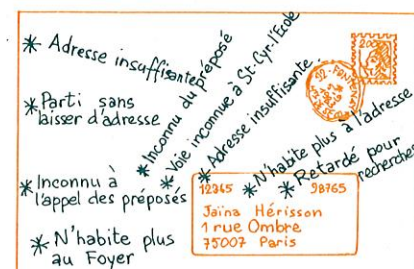 * Adresse insuffisante
* Parti sans
laisser d'adresse
* Inconnu à
l'appel des préposés
* N'habite plus
au Foyer
* Inconnu du préposé
* Voie inconnue à St-Cyr-l'Ecole
* Adresse insuffisante
* N'habite plus à l'adresse
* Retardé pour
recherches
2.00
92-FONTENAY
12345 98765
Jaïna Hérisson
1 rue Ombre
75007 Paris